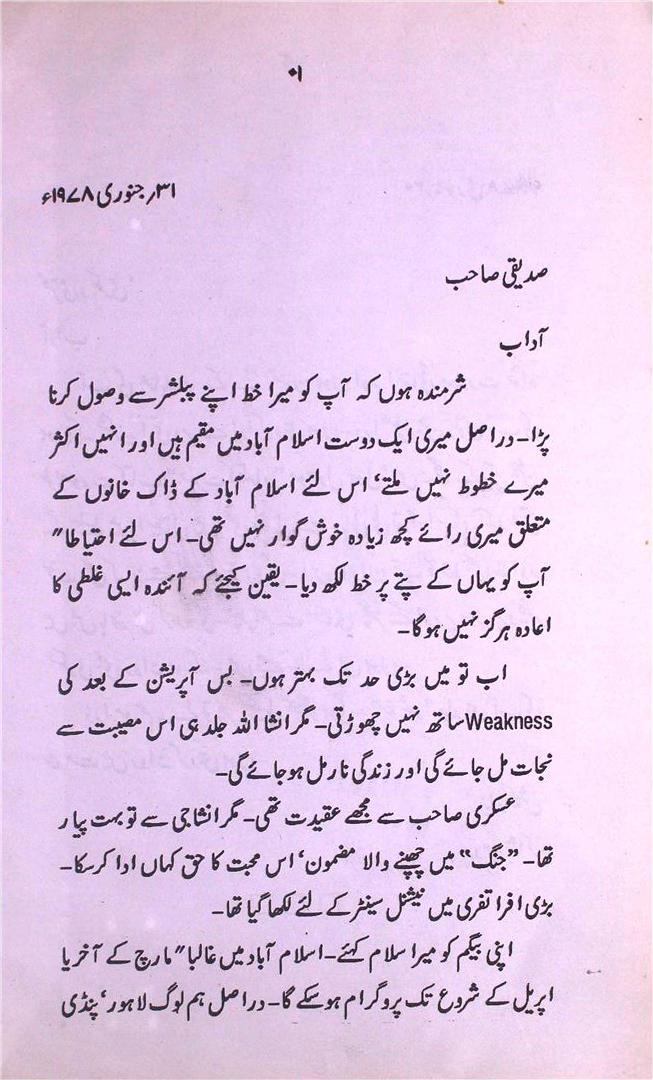 ۰۱
۳۱؍ جنوری ۱۹۷۸ء
صدیقی صاحب
آداب
شرمندہ ہوں کہ آپ کو میرا خط اپنے پبلشر سے وصول کرنا
پڑا۔ دراصل میری ایک دوست اسلام آباد میں مقیم ہیں اور انہیں اکثر
میرے خطوط نہیں ملتے‘ اس لئے اسلام آباد کے ڈاک خانوں کے
متعلق میری رائے کچھ زیادہ خوش گوار نہیں تھی۔ اس لئے احتیاطا"
آپ کو یہاں کے پتے پر خط لکھ دیا۔ یقین کیجئے کہ آئندہ ایسی غلطی کا
اعادہ ہرگز نہیں ہوگا۔
اب تو میں بڑی حد تک بہتر ہوں۔ بس آپریشن کے بعد کی
Weakness ساتھ نہیں چھوڑتی۔ مگر انشا اللہ جلد ہی اس مصیبت سے
نجات مل جائے گی اور زندگی نارمل ہوجائے گی۔
عسکری صاحب سے مجھے عقیدت تھی۔ مگر انشاجی سے تو بہت پیار
تھا۔ ”جنگ“ میں چھپنے والا مضمون‘ اس محبت کا حق کہاں ادا کرسکا۔
بڑی افرا تفری میں نیشنل سینٹر کے لئے لکھا گیا تھا۔
اپنی بیگم کو میرا سلام کہئے۔ اسلام آباد میں غالبا" مارچ کے آخر یا
اپریل کے شروع تک پروگرام ہوسکے گا۔ دراصل ہم لوگ لاہور‘ پنڈی